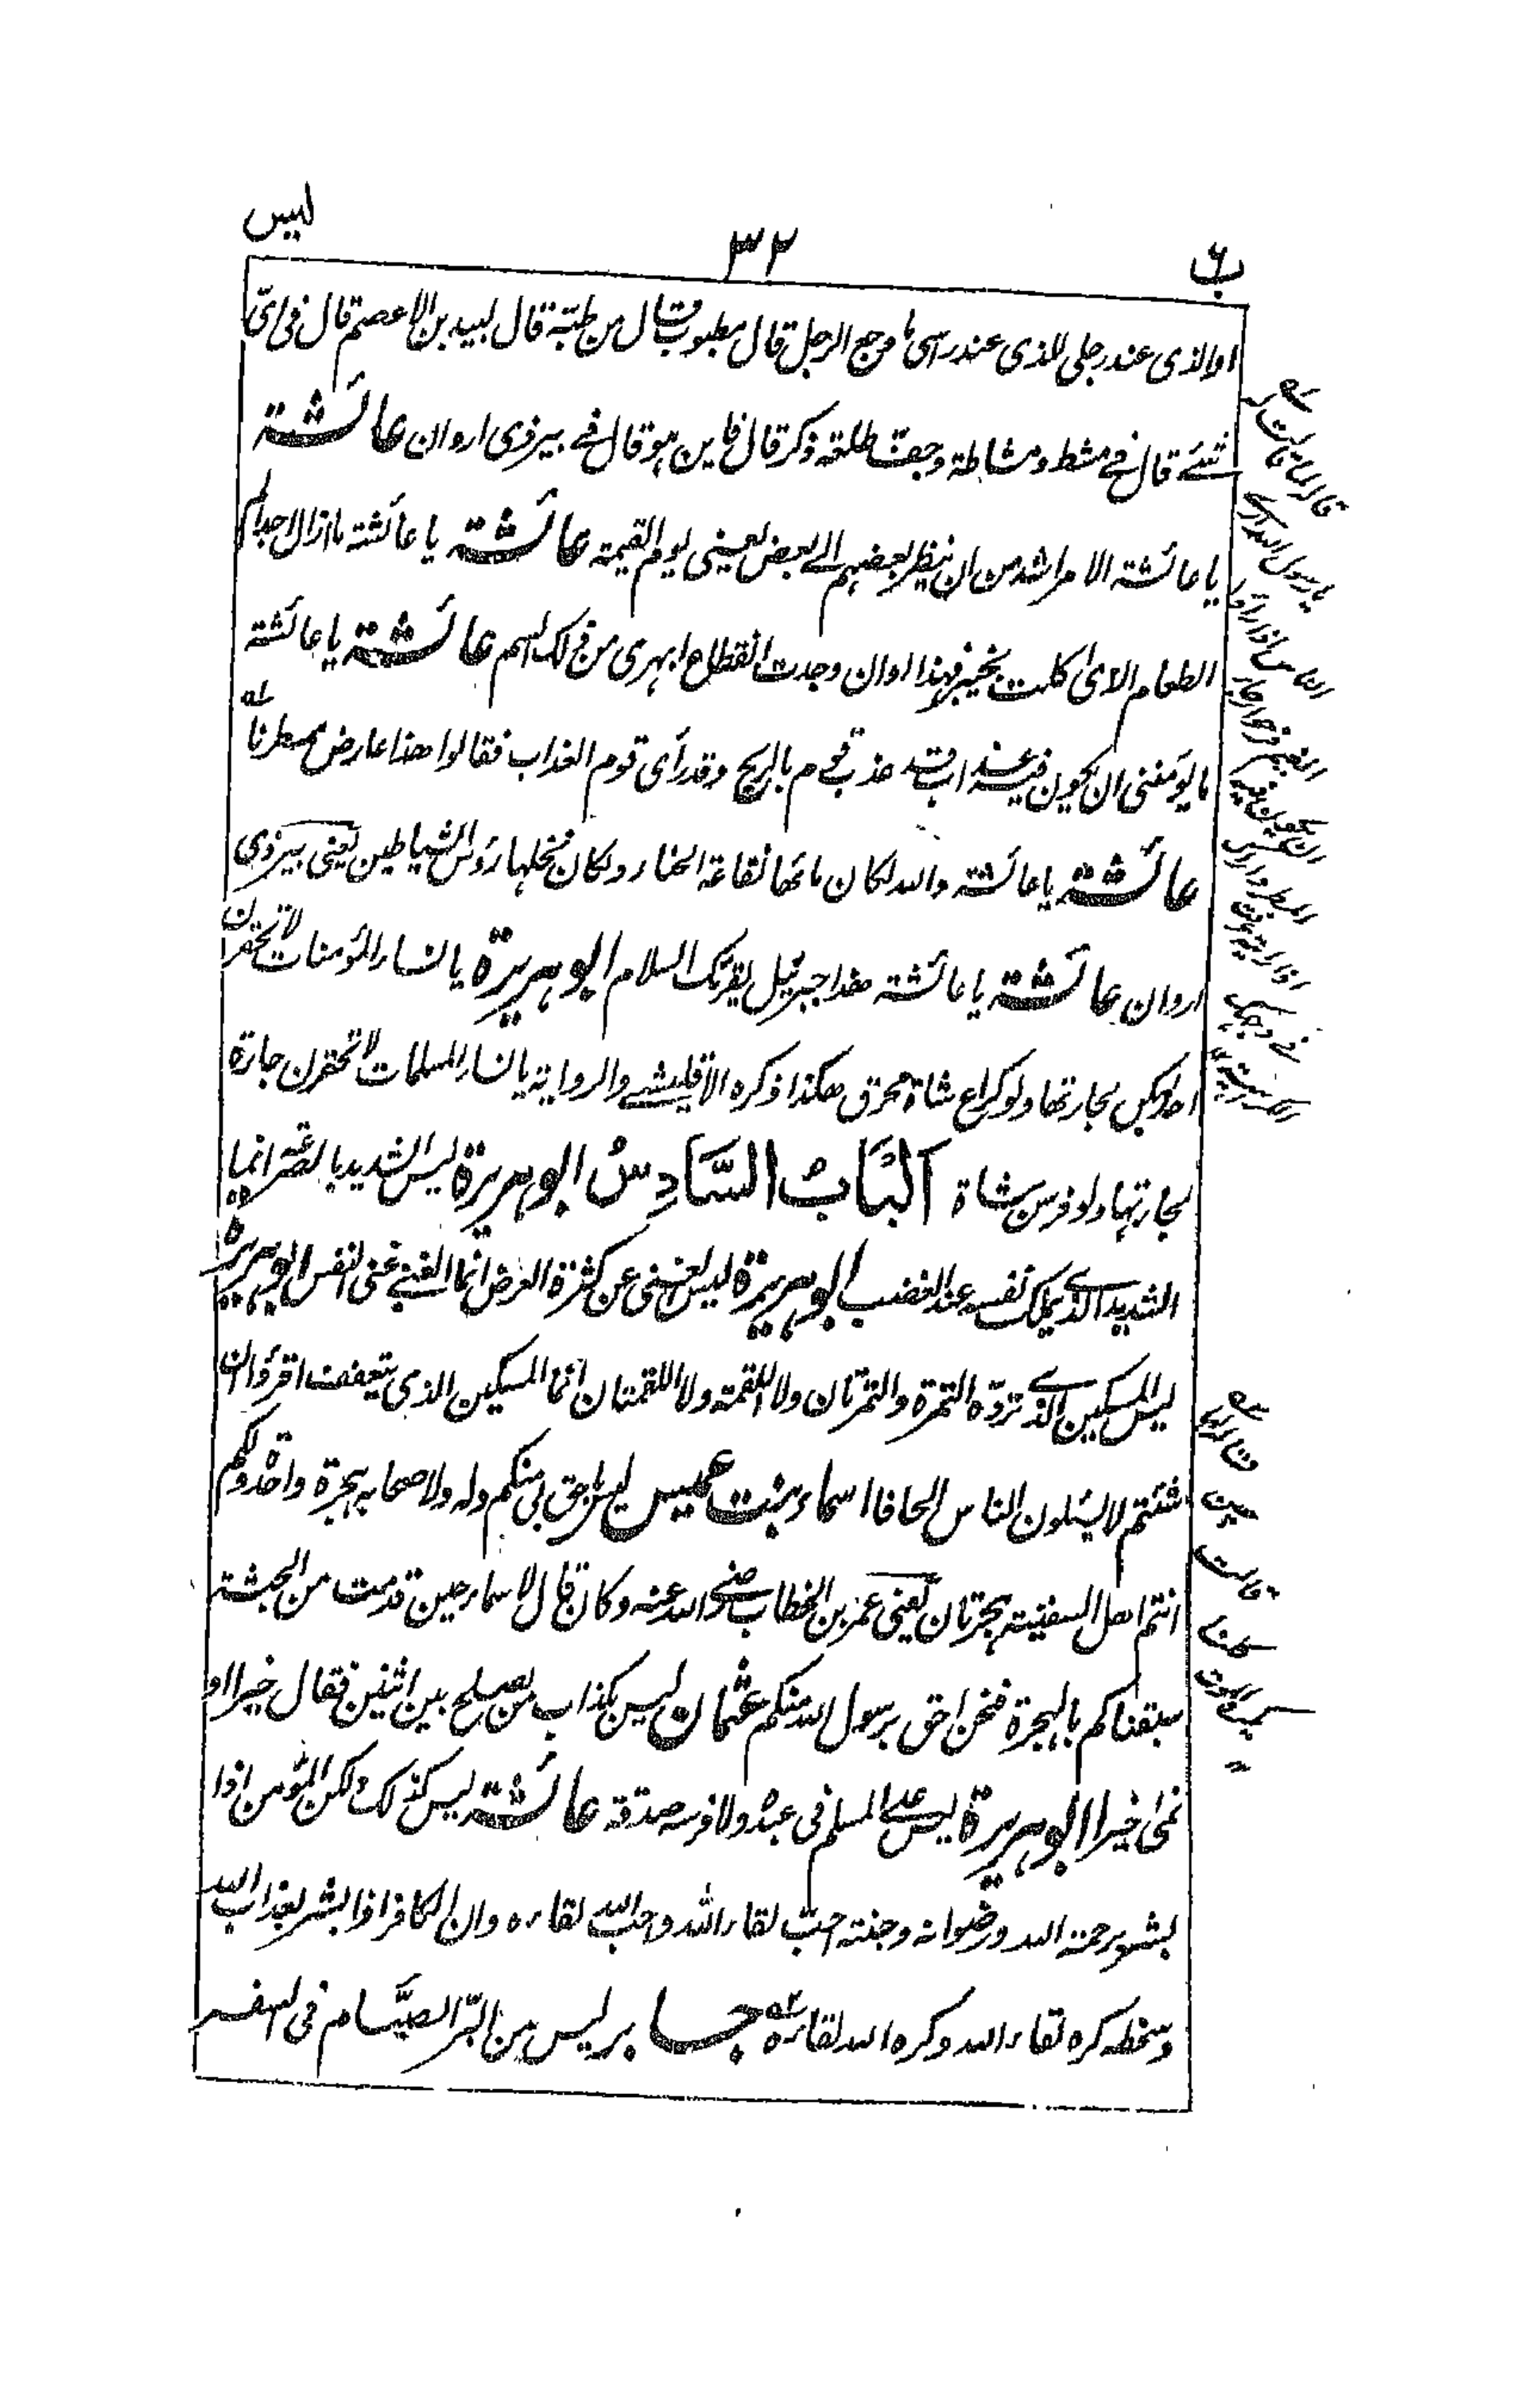 ب ۶
۳۲
ليس
او الذى عند رجلى للذى عند راسى ما وجع الرجل قال مطبوب قال من طبّه قال لبيد بن الاعصم قال فى اىّ
شئے قال فے مشط و مشاطة وجفّ طلعة ذكر قال فاين هو قال فے بير ذى اروان عائشة
يا عائشة الامر اشد من ان ينظر بعضهم الے بعض يعنى يوم القيمة عائشة يا عائشة ما ازال اجد الم
الطعام الذى اكلت بخيبر فهذا اوان وجدت انقطاع ابهرى من ذلك السم عائشة يا عائشة
ما يؤمننى ان يكون فيه عذاب قد عذب قوم بالريح وقد رأى قوم العذاب فقالوا هذا عارض ممطرنا
عائشة يا عائشة والله لكان ماءها نقاعة الحناء ولكان نخلها رؤس الشياطين يعنى بير ذى
اروان عائشة يا عائشة هذا جبرئيل يقرئك السلام ابو هريرة يا نساء المؤمنات لا تحقرن
احدىكن لجارتها ولو كراع شاة محرق هكذا ذكره الاقليشے والرواية يا نساء المسلمات لا تحقرن جارة
لجارتها ولو فرسن شاة اَلْبَابُ السَّادِسُ ابو هريرة ليس الشديد بالصرعة انما
الشديد الذے يملك نفسه عند الغضب ابو هريرة ليس الغنى عن كثرة العرض انما الغنے غنى النفس ابو هريرة
ليس المسكين الذے تردّه التمرة والتمرتان ولا اللقمة ولا اللقمتان انما المسكين الذى يتعفف اقرؤا ان
شئتم لا يسئلون الناس الحافا اسماء بنت عميس ليس باحق بى منكم وله ولاصحابه هجرة واحدة ولكم
انتم اهل السفينة هجرتان يعنى عمر بن الخطاب رضى الله عنه وكان قال لاسماء حين قدمت من الحبشة
سبقناكم بالهجرة فنحن احق برسول الله منكم عثمان ليس بكذاب من يصلح بين اثنين فقال خيرا او
نمى خيرا ابو هريرة ليس على المسلم فى عبده ولا فرسه صدقة عائشة ليس كذلك ولكن المؤمن اذا
بشر برحمة الله ورضوانه وجنته احبّ لقاء الله واحب الله لقاءه وان الكافر اذا بشر بعذاب الله
وسخطه كره لقاء الله وكره الله لقاءه جابر ليس من البرّ الصيَّام فى السفر
قاله لما قالت له
يا رسول الله ارى
الناس اذا رأوا
الغيم فرحوا رجاء
ان يكون فيه
المطر واراك
اذا رايته عرفت
فے وجهك
الكراهية
قاله
حين
قالت
كلنا